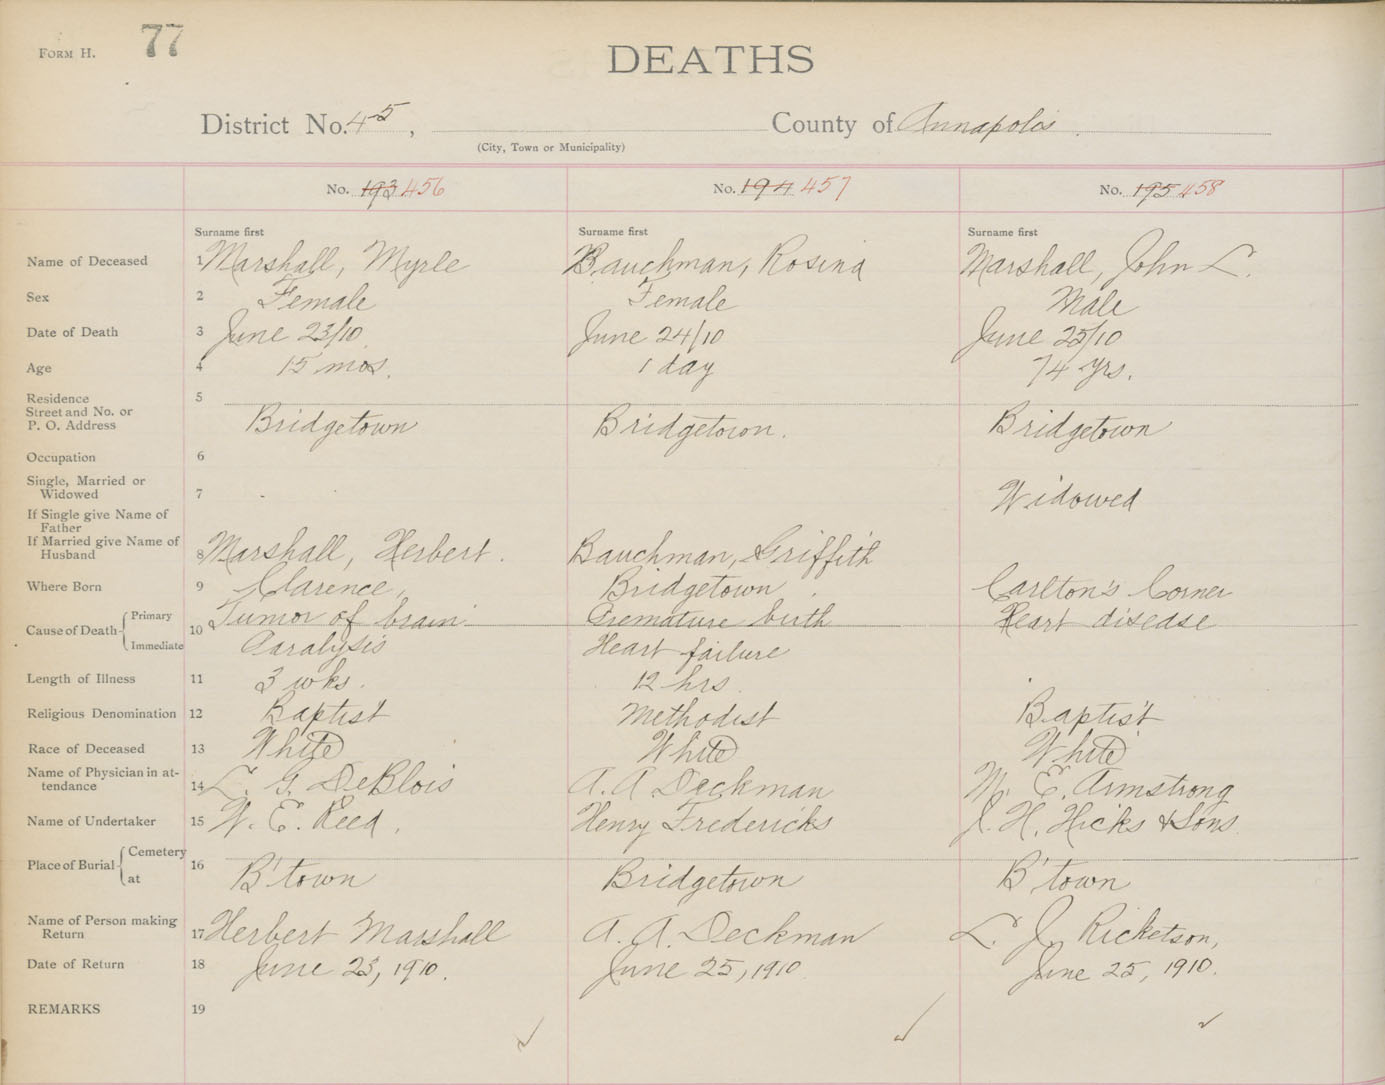 FORM H. 77
DEATHS
District No. 45, County of Annapolis
(City, Town or Municipality)
No. 193 456 No. 194 457 No. 195 458
Surname first Surname first Surname first
Name of Deceased 1 Marshall, Myrle Bauchman, Rosina Marshall, John L.
Sex 2 Female Female Male
Date of Death 3 June 23/10 June 24/10 June 25/10
Age 4 15 mos. 1 day 74 yrs.
Residence 5
Street and No. or
P. O. Address Bridgetown Bridgetown. Bridgetown
Occupation 6
Single, Married or
Widowed 7 Widowed
If Single give Name of
Father
If Married give Name of
Husband 8 Marshall, Herbert. Bauchman, Griffith
Where Born 9 Clarence, Bridgetown. Carlton's Corner
Cause of Death Primary 10 Tumor of brain Premature birth Heart disease
Immediate Paralysis Heart failure
Length of Illness 11 3 wks. 12 hrs.
Religious Denomination 12 Baptist Methodist Baptist
Race of Deceased 13 White White White
Name of Physician in at-
tendance 14 L. G. DeBlois A. A. Deckman M. E. Armstrong
Name of Undertaker 15 W. E. Reed, Henry Fredericks J. H. Hicks & Sons
Place of Burial Cemetery 16
at B'town Bridgetown B'town
Name of Person making
Return 17 Herbert Marshall A. A. Deckman L. J. Ricketson,
Date of Return 18 June 23, 1910. June 25, 1910 June 25, 1910.
REMARKS 19